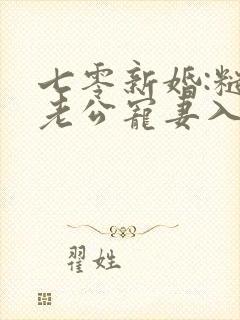 七零新婚:糙
老公宠妻入
翟姓